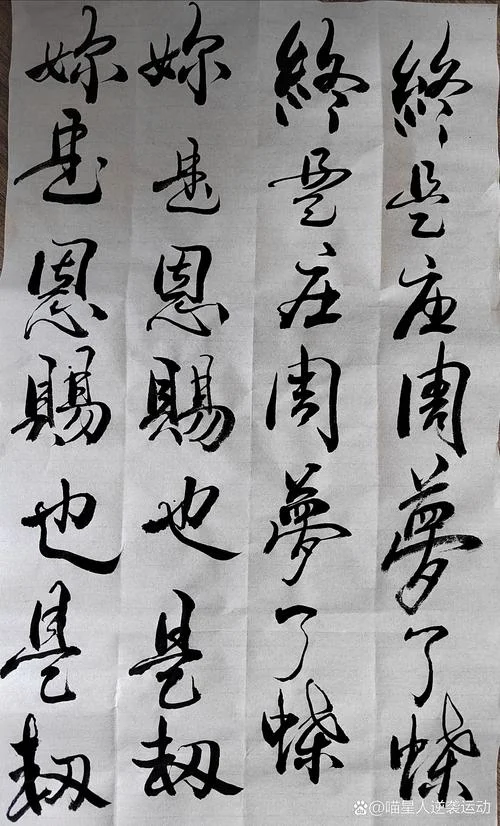 終是庄周夢了蝶
終是庄周夢了蝶
妳是恩賜也是劫
妳是恩賜也是劫
@喵星人逆袭运动